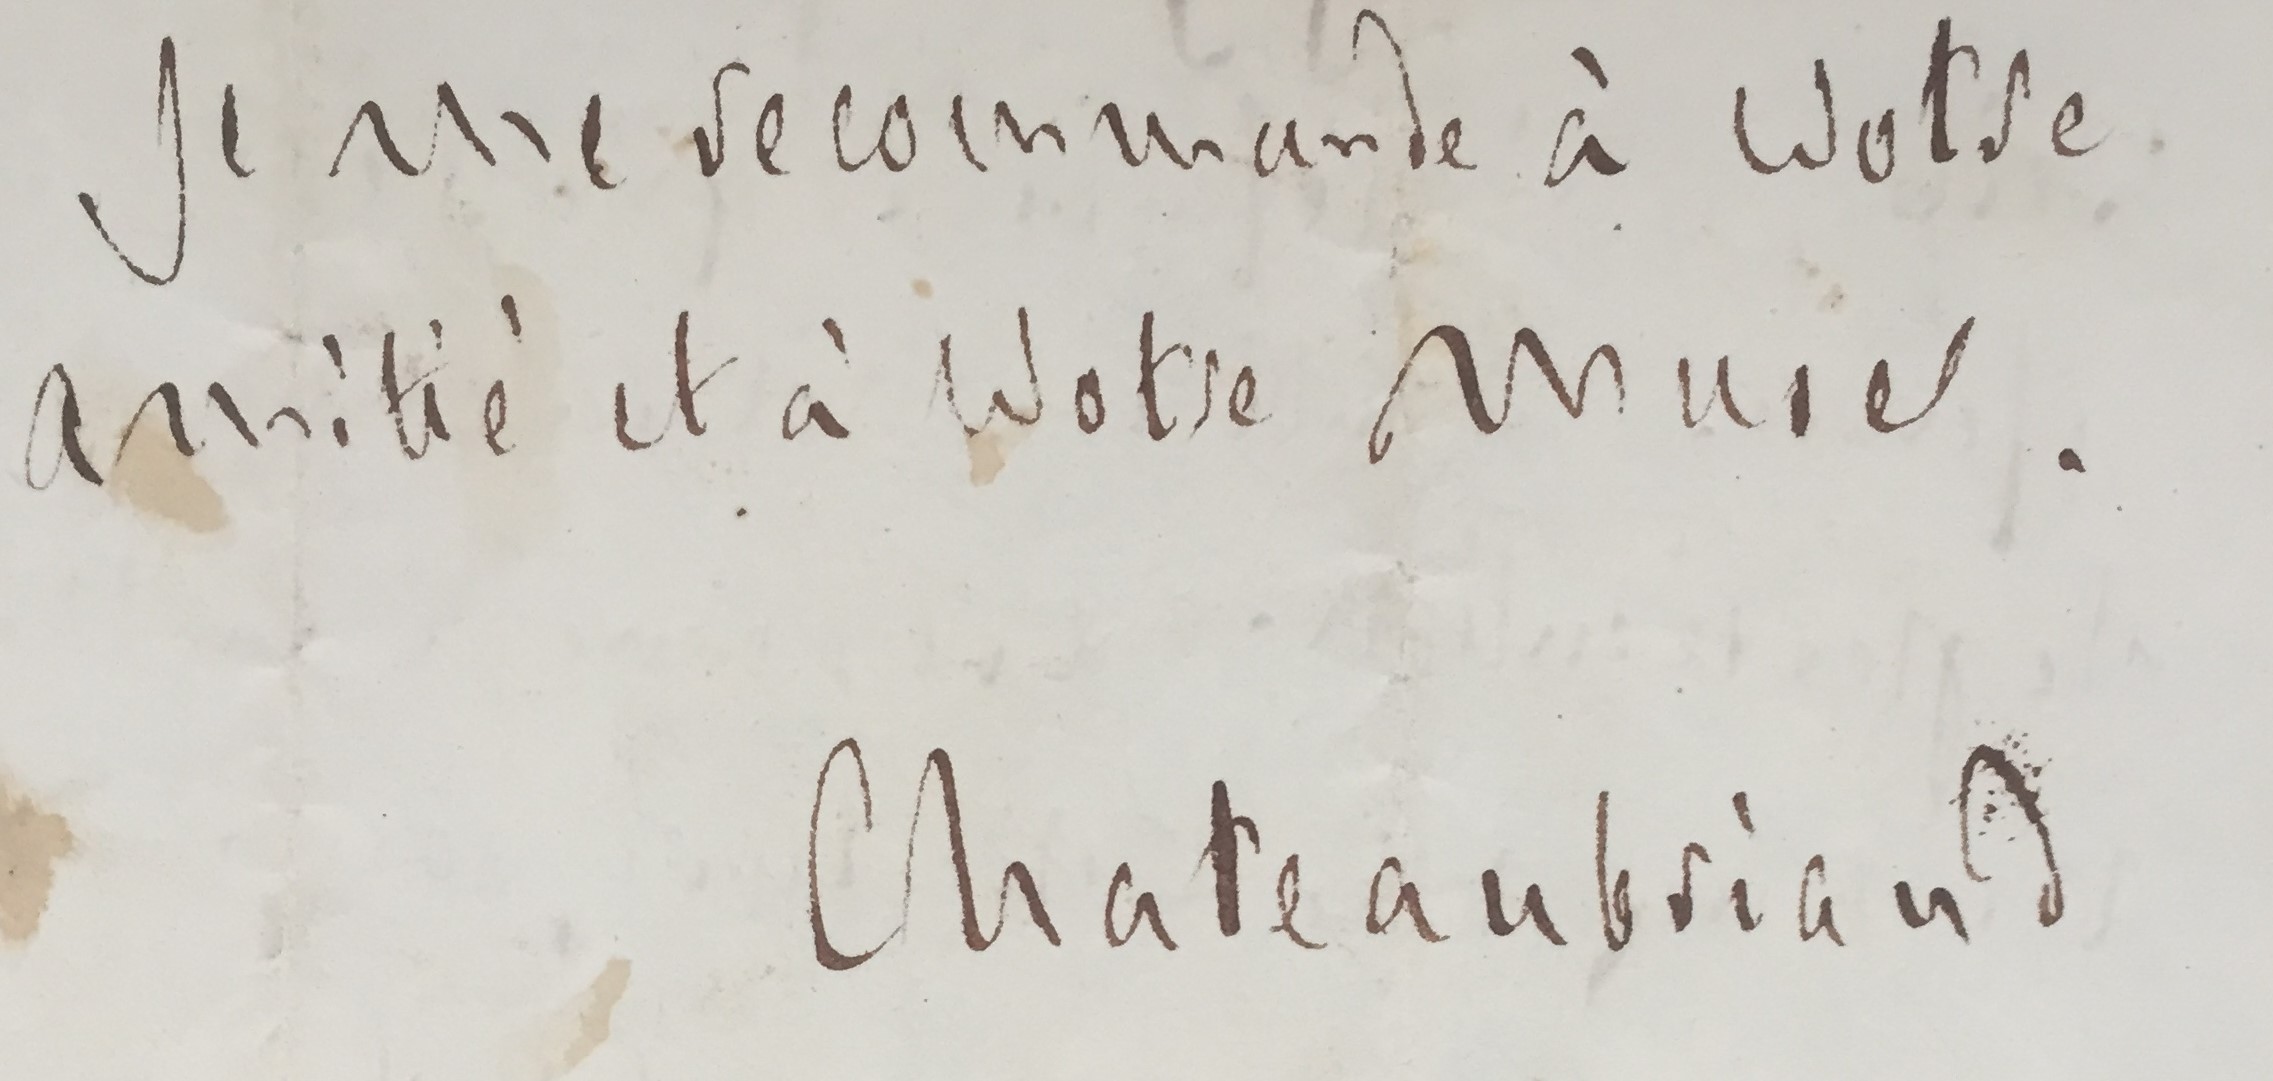 Je me recommande à votre
amitié et à votre muse.
Chateaubriand